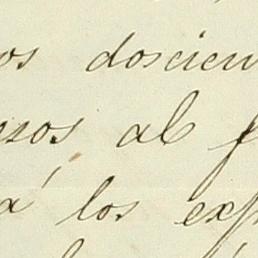 os doscien
esos, al f
a los exp